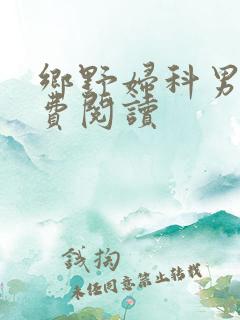 鄉野婦科男
費閱讀
錢掏
未经同意禁止转载